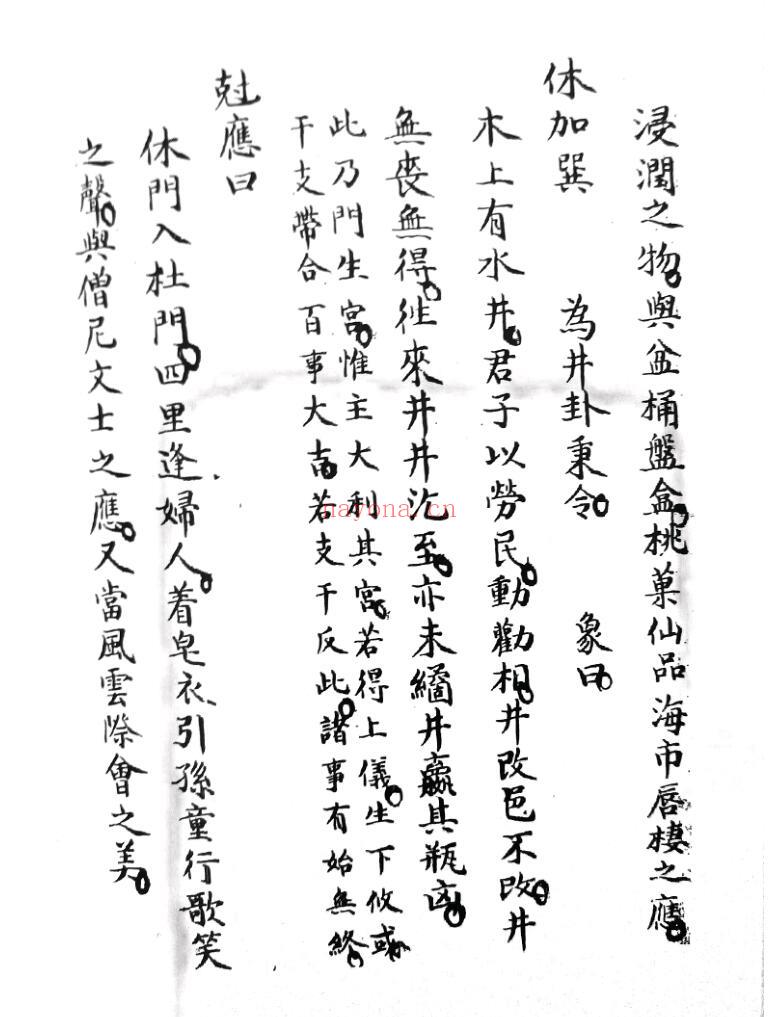 浸潤之物。與盆桶盤盒。桃菓仙品海市唇棲之應。
休加巽　為井卦秉令。　象曰。
木上有水井。君子以勞民。動勸相。井改邑不改。井
無喪無得。往來井井汔至。亦未繘井羸其瓶凶。
此乃門生宮。惟主大利其宮。若得上儀。生下攸或
干支帶合百事大吉。若支干反此。諸事有始無終。
尅應曰
休門入杜門。四里逢婦人。着皂衣、引孫童行歌笑
之聲。與僧尼文士之應。又當風雲際會之美。
nayona.cn